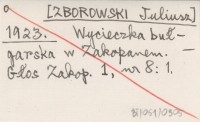 [ZBOROWSKI Juliusz]
1923. Wycieczka buł-
garska w Zakopanem. —
Głos Zakop. 1, nr 8: 1.